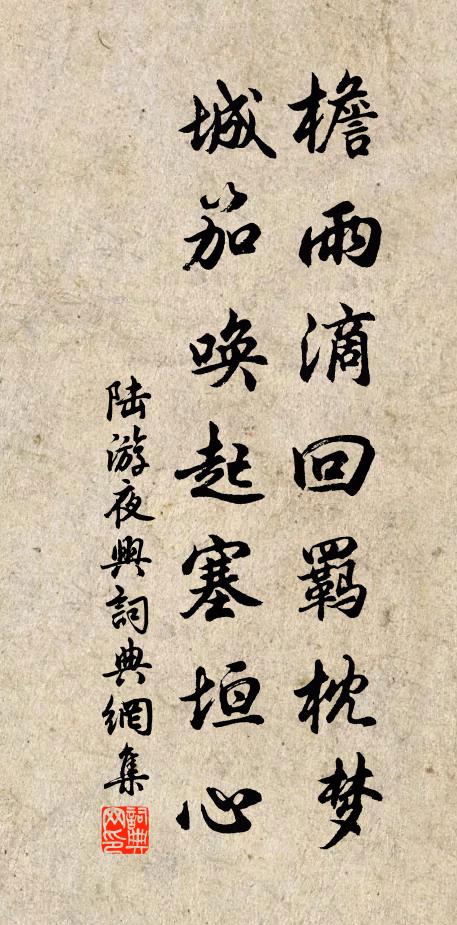 檐雨滴回羁枕梦
城笳唤起塞垣心
陆游夜興詞典網集
詞典网印